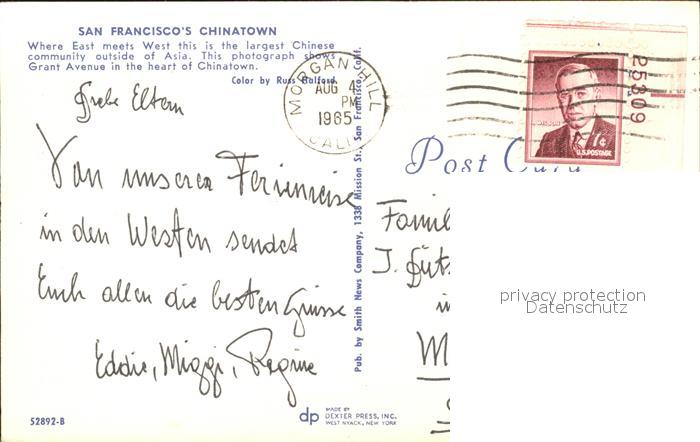 SAN FRANCISCO'S CHINATOWN
Where East meets West this is the largest Chinese
community outside of Asia. This photograph shows
Grant Avenue in the heart of Chinatown.
Color by Russ Halford
MORGAN HILL
AUG 4
PM
1965
CALIF.
25309
7¢
U.S. POSTAGE
Post Card
Liebe Eltern
Von unserer Ferienreise
in den Westen sendet
Euch allen die besten Grüsse
Eddie, Miggi, Regine
Pub. by Smith News Company, 1338 Mission St., San Francisco, Calif.
Famil
J.
in
M
privacy protection
Datenschutz
52892-B
dp
MADE BY
DEXTER PRESS, INC.
WEST NYACK, NEW YORK